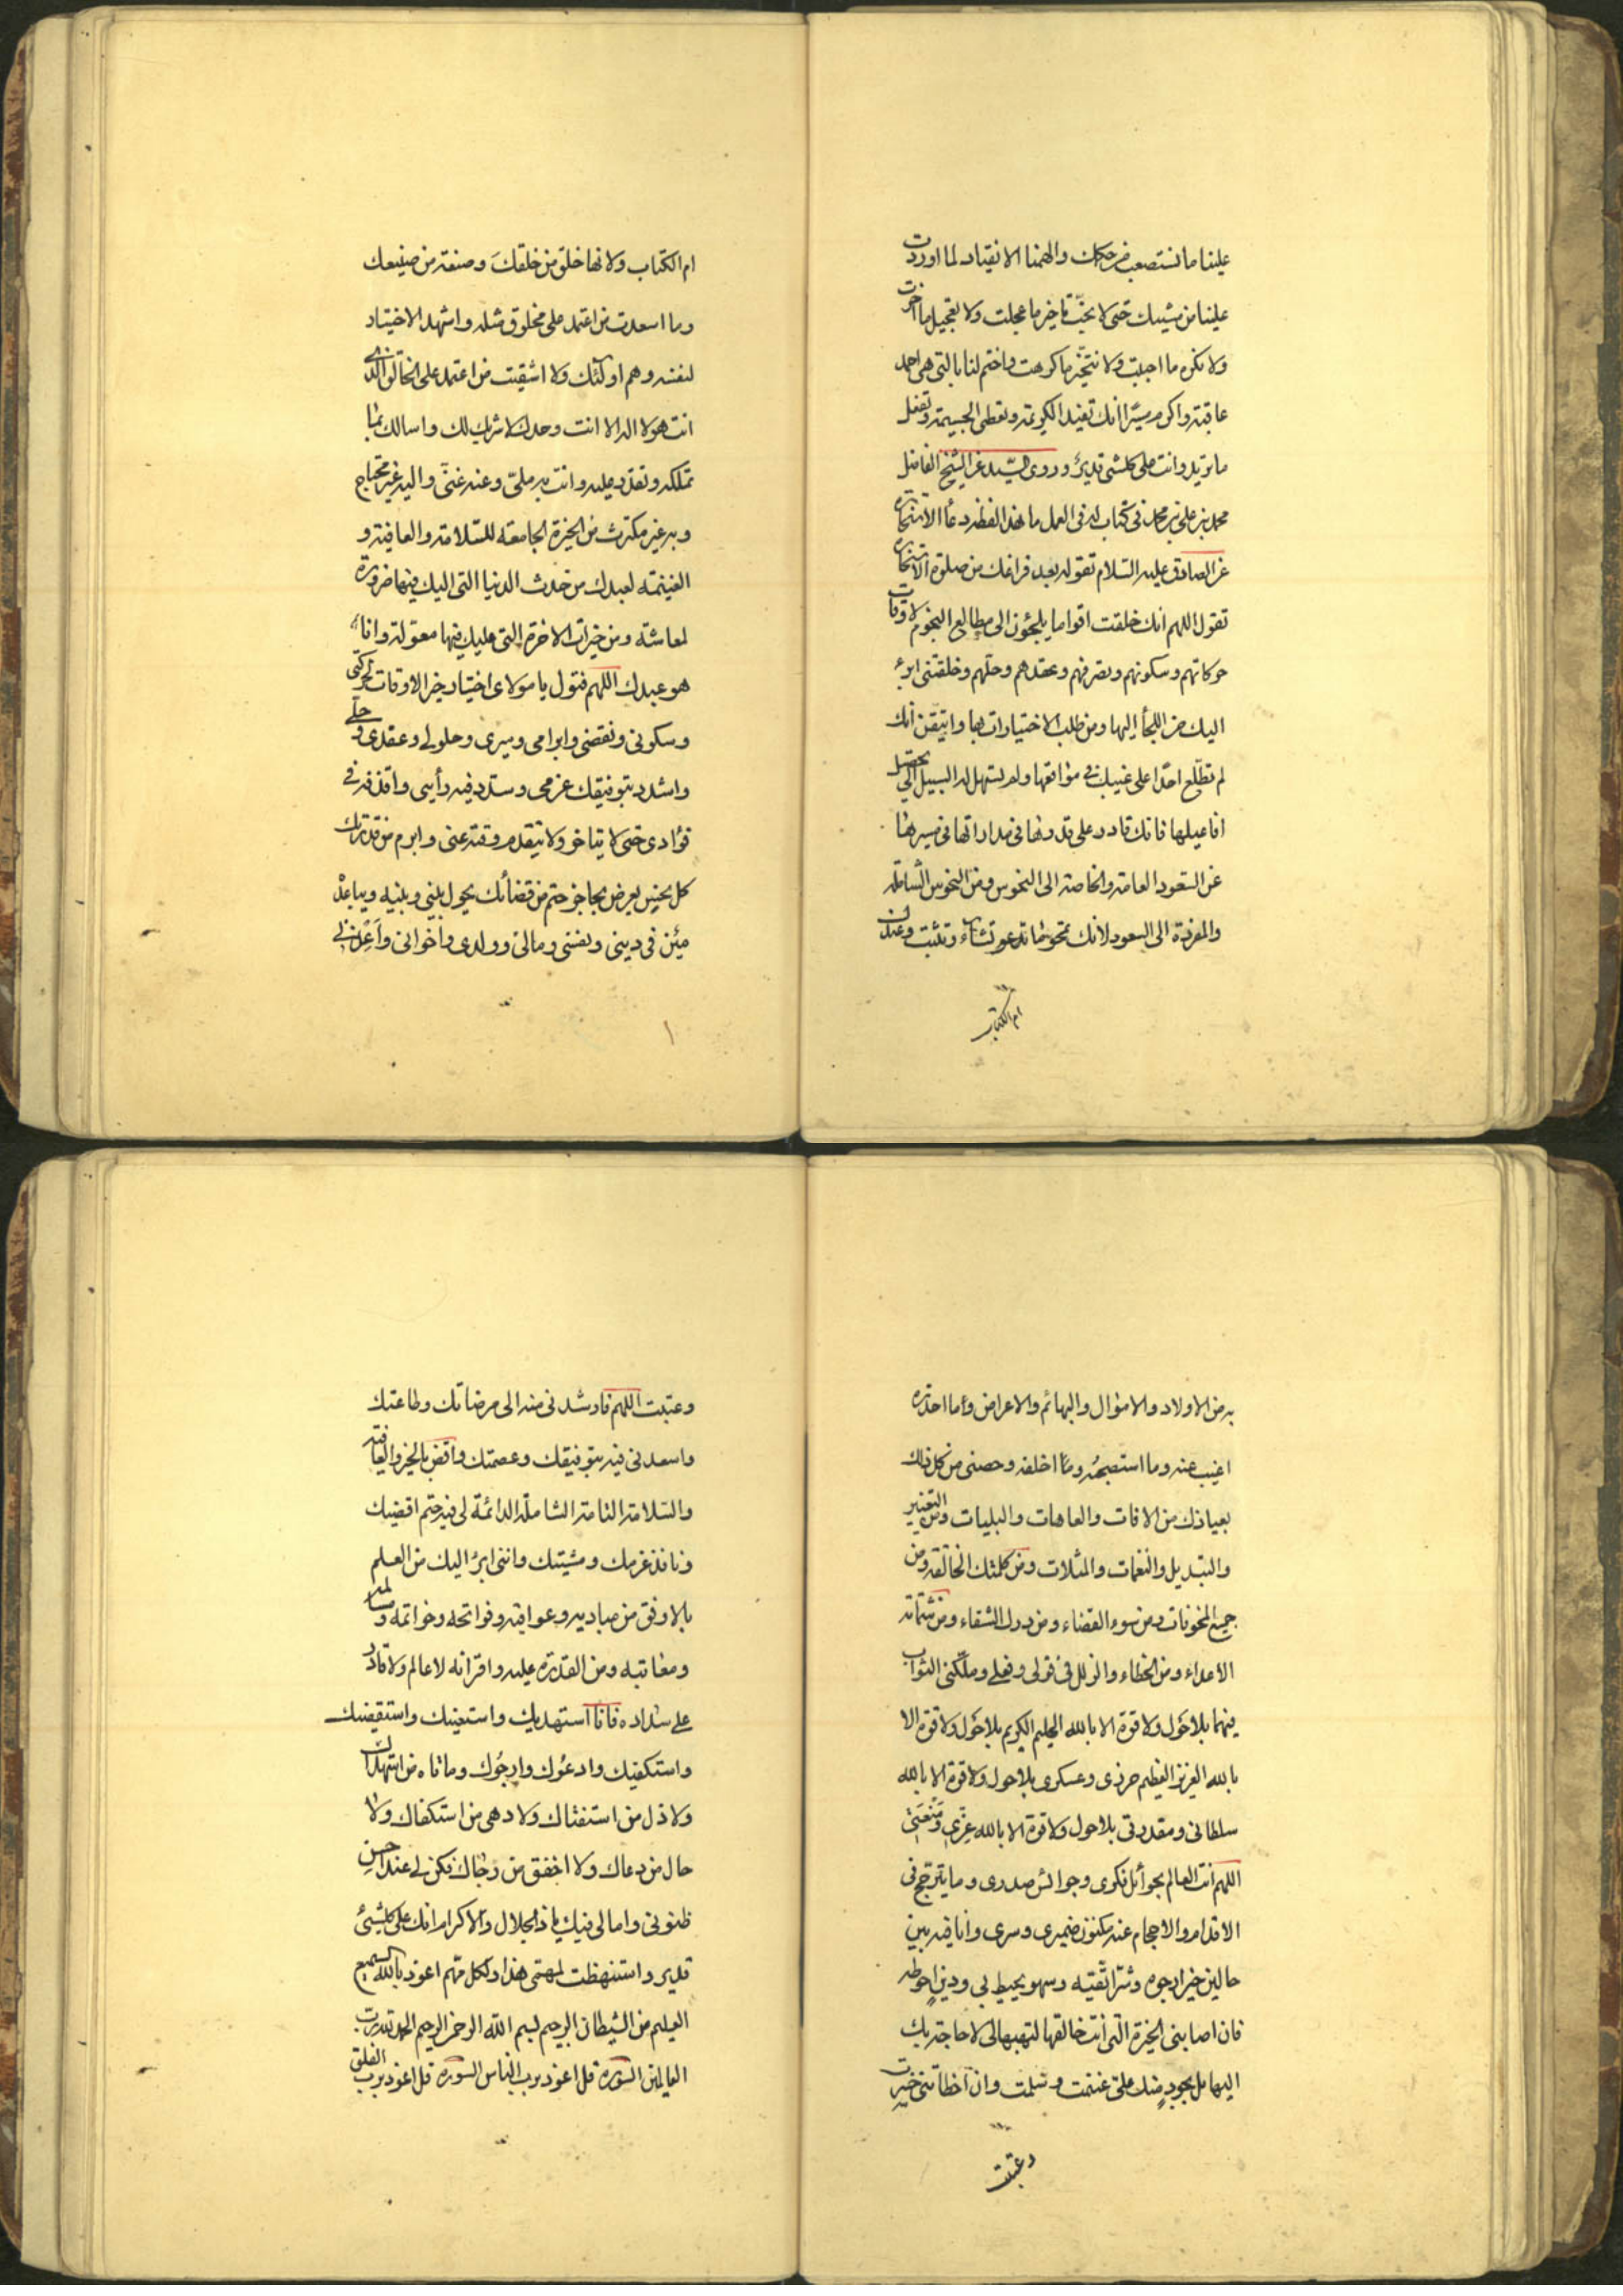 علينا ما نستصعب من حكمك والهمنا الانقياد لما اوردت
علينا من مشيتك حتى لا نحب تاخير ما عجلت ولا تعجيل ما اخرت
ولا نكره ما احببت ولا نتخير ما كرهت واختم لنا بالتى هى احمد
عاقبة واكرم مصيرا انك تفيد الكريمة وتعطى الجسيمة وتفعل
ما تريد وانت على كلشئ قدير وروى السيد عن الشيخ الفاضل
محمد بن على بن محمد فى كتاب له فى العمل ما هذا لفظه دعاء الاستخارة
عن الصادق عليه السلام تقوله بعد فراغك من صلوة الاستخارة
تقول اللهم انك خلقت اقواما يلجئون الى مطالع النجوم لاوقات
حركاتهم وسكونهم وتصرفهم وعقدهم وحلهم وخلقتنى ابرء
اليك من اللجأ اليها ومن طلب الاختيارات بها واتيقن انك
لم تطلع احدا على غيبك فى مواقعها ولم تسهل له السبيل الى تحصيل
افاعيلها فانك قادر على قدرتها فى مداراتها فى مسيرها
عن السعود العامة والخاصة الى النحوس ومن النحوس الشاملة
والمفردة الى السعود لانك تمحو ما تشاء وتثبت وعندك
ام الكتاب
ام الكتاب ولانها خلق من خلقك وصنعة من صنيعك
وما اسعدت من اعتمد على مخلوق مثله واستهد الاختيار
لنفسه وهم اولئك ولا اشقيت من اعتمد على الخالق الذى
انت هو لا اله الا انت وحدك لا شريك لك واسالك بما
تملكه وتقدر عليه وانت به ملى وعنه غنى واليه غير محتاج
وبه غير مكترث من الخيرة الجامعة للسلامة والعافية و
الغنيمة لعبدك من حدث الدنيا التى اليك فيها ضرورة
لمعاشه ومن خيرات الاخرة التى عليك فيها معولة وانا
هو عبدك اللهم فتول يا مولاى اختيار خير الاوقات لحركتى
وسكونى ونقضى وابرامى وسيرى وحلولى وعقدى وحلى
واشدد بتوفيقك عزمى وسدد فيه رأيى واقذفه فى
فؤادى حتى لا يتاخر ولا يتقدم وقته عنى وابرم من قدرتك
كل نحس يعرض بحاجز حتم من قضائك يحول بينى وبينه ويباعد
منى فى دينى ونفسى ومالى وولدى واخوانى واعذنى
به من الاولاد والاموال والبهائم والاعراض وما احذره
اغيب عنه وما استصحبه وما اخلفه وحصنى من كل ذلك
بعياذك من الافات والعاهات والبليات ومن التغيير
والتبديل والنقمات والمثلات ومن كلمتك الخالقة ومن
جميع المخوفات ومن سوء القضاء ومن درك الشقاء ومن شماتة
الاعداء ومن الخطاء والزلل فى قولى وفعلى وملكنى الثواب
فيهما بلا حول ولا قوة الا بالله الحليم الكريم بلا حول ولا قوة الا
بالله العزيز العظيم حرزى وعسكرى بلا حول ولا قوة الا بالله
سلطانى ومقدرتى بلا حول ولا قوة الا بالله عزى ومنعتى
اللهم انت العالم بجوائل فكرى وجوائس صدرى وما يترجح فى
الاقدام والاحجام عند مكنون ضميرى وسرى وانا فيه بين
حالين خير ارجوه وشر اتقيه وسهو يحيط بى ودين احوطه
فان اصابنى الخيرة التى انت خالقها لتهبها لى لا حاجة بك
اليها بل بجود منك على غنمت وسلمت وان اخطاتنى خسرت
وعتبت
وعتبت اللهم فارشدنى منه الى مرضاتك وطاعتك
واسعدنى فيه بتوفيقك وعصمتك واقض بالخير والعافية
والسلامة التامة الشاملة الدائمة لى فيه حتم اقضيتك
ونافذ عزمك ومشيتك واننى ابرء اليك من العلم
بالاوفق من مباديه وعواقبه وفواتحه وخواتمه ومسالمه
ومعاتبه ومن القدرة عليه واقرانه لا عالم ولا قادر
على سداده فانا استهديك واستعينك واستقضيك
واستكفيك وادعوك وارجوك وما تاه من استهداك
ولا ذل من استفتاك ولا دهى من استكفاك ولا
حال من دعاك ولا اخفق من رجاك فكن لى عند احسن
ظنونى وامالى فيك يا ذا الجلال والاكرام انك على كلشئ
قدير واستنهظت لمهمى هذا ولكل مهم اعوذ بالله السميع
العليم من الشيطان الرجيم بسم الله الرحمن الرحيم الحمد لله رب
العالمين السورة قل اعوذ برب الناس السورة قل اعوذ برب الفلق